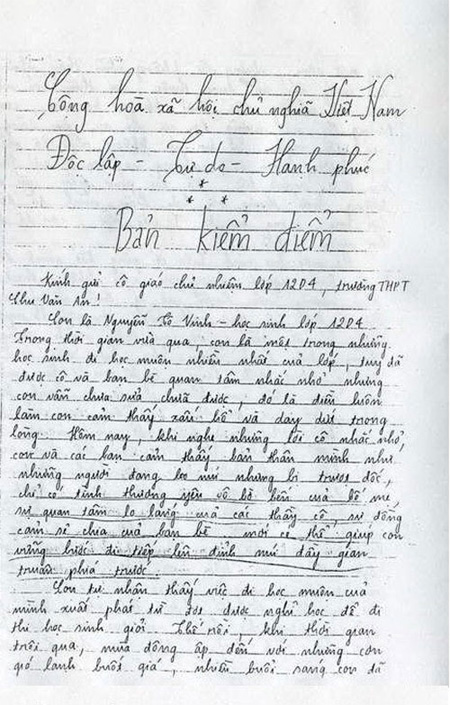 Cộng hoà xã hội chủ nghĩa Việt Nam
Độc lập - Tự do - Hạnh phúc
* * *
Bản kiểm điểm
Kính gửi cô giáo chủ nhiệm lớp 12D4, trường THPT
Chu Văn An!
Con là Nguyễn Tố Vinh - học sinh lớp 12D4
Trong thời gian vừa qua, con là một trong những
học sinh đi học muộn nhiều nhất của lớp, tuy đã
được cô và bạn bè quan tâm nhắc nhở nhưng
con vẫn chưa sửa chữa được, đó là điều luôn
làm con cảm thấy xấu hổ và day dứt trong
lòng. Hôm nay, khi nghe những lời cô nhắc nhở,
con và các bạn cảm thấy bản thân mình như
những người đang leo núi nhưng bị trượt dốc,
chỉ có tình thương yêu vô bờ bến của bố mẹ,
sự quan tâm lo lắng của các thầy cô, sự đồng
cảm sẻ chia của bạn bè mới có thể giúp con
vững bước đi tiếp lên đỉnh núi đầy gian
truân phía trước.
Con tự nhận thấy việc đi học muộn của
mình xuất phát từ đợt được nghỉ học để đi
thi học sinh giỏi. Thế rồi, khi thời gian
trôi qua, mùa đông ập đến với những cơn
gió lạnh buốt giá, nhiều buổi sáng con đã